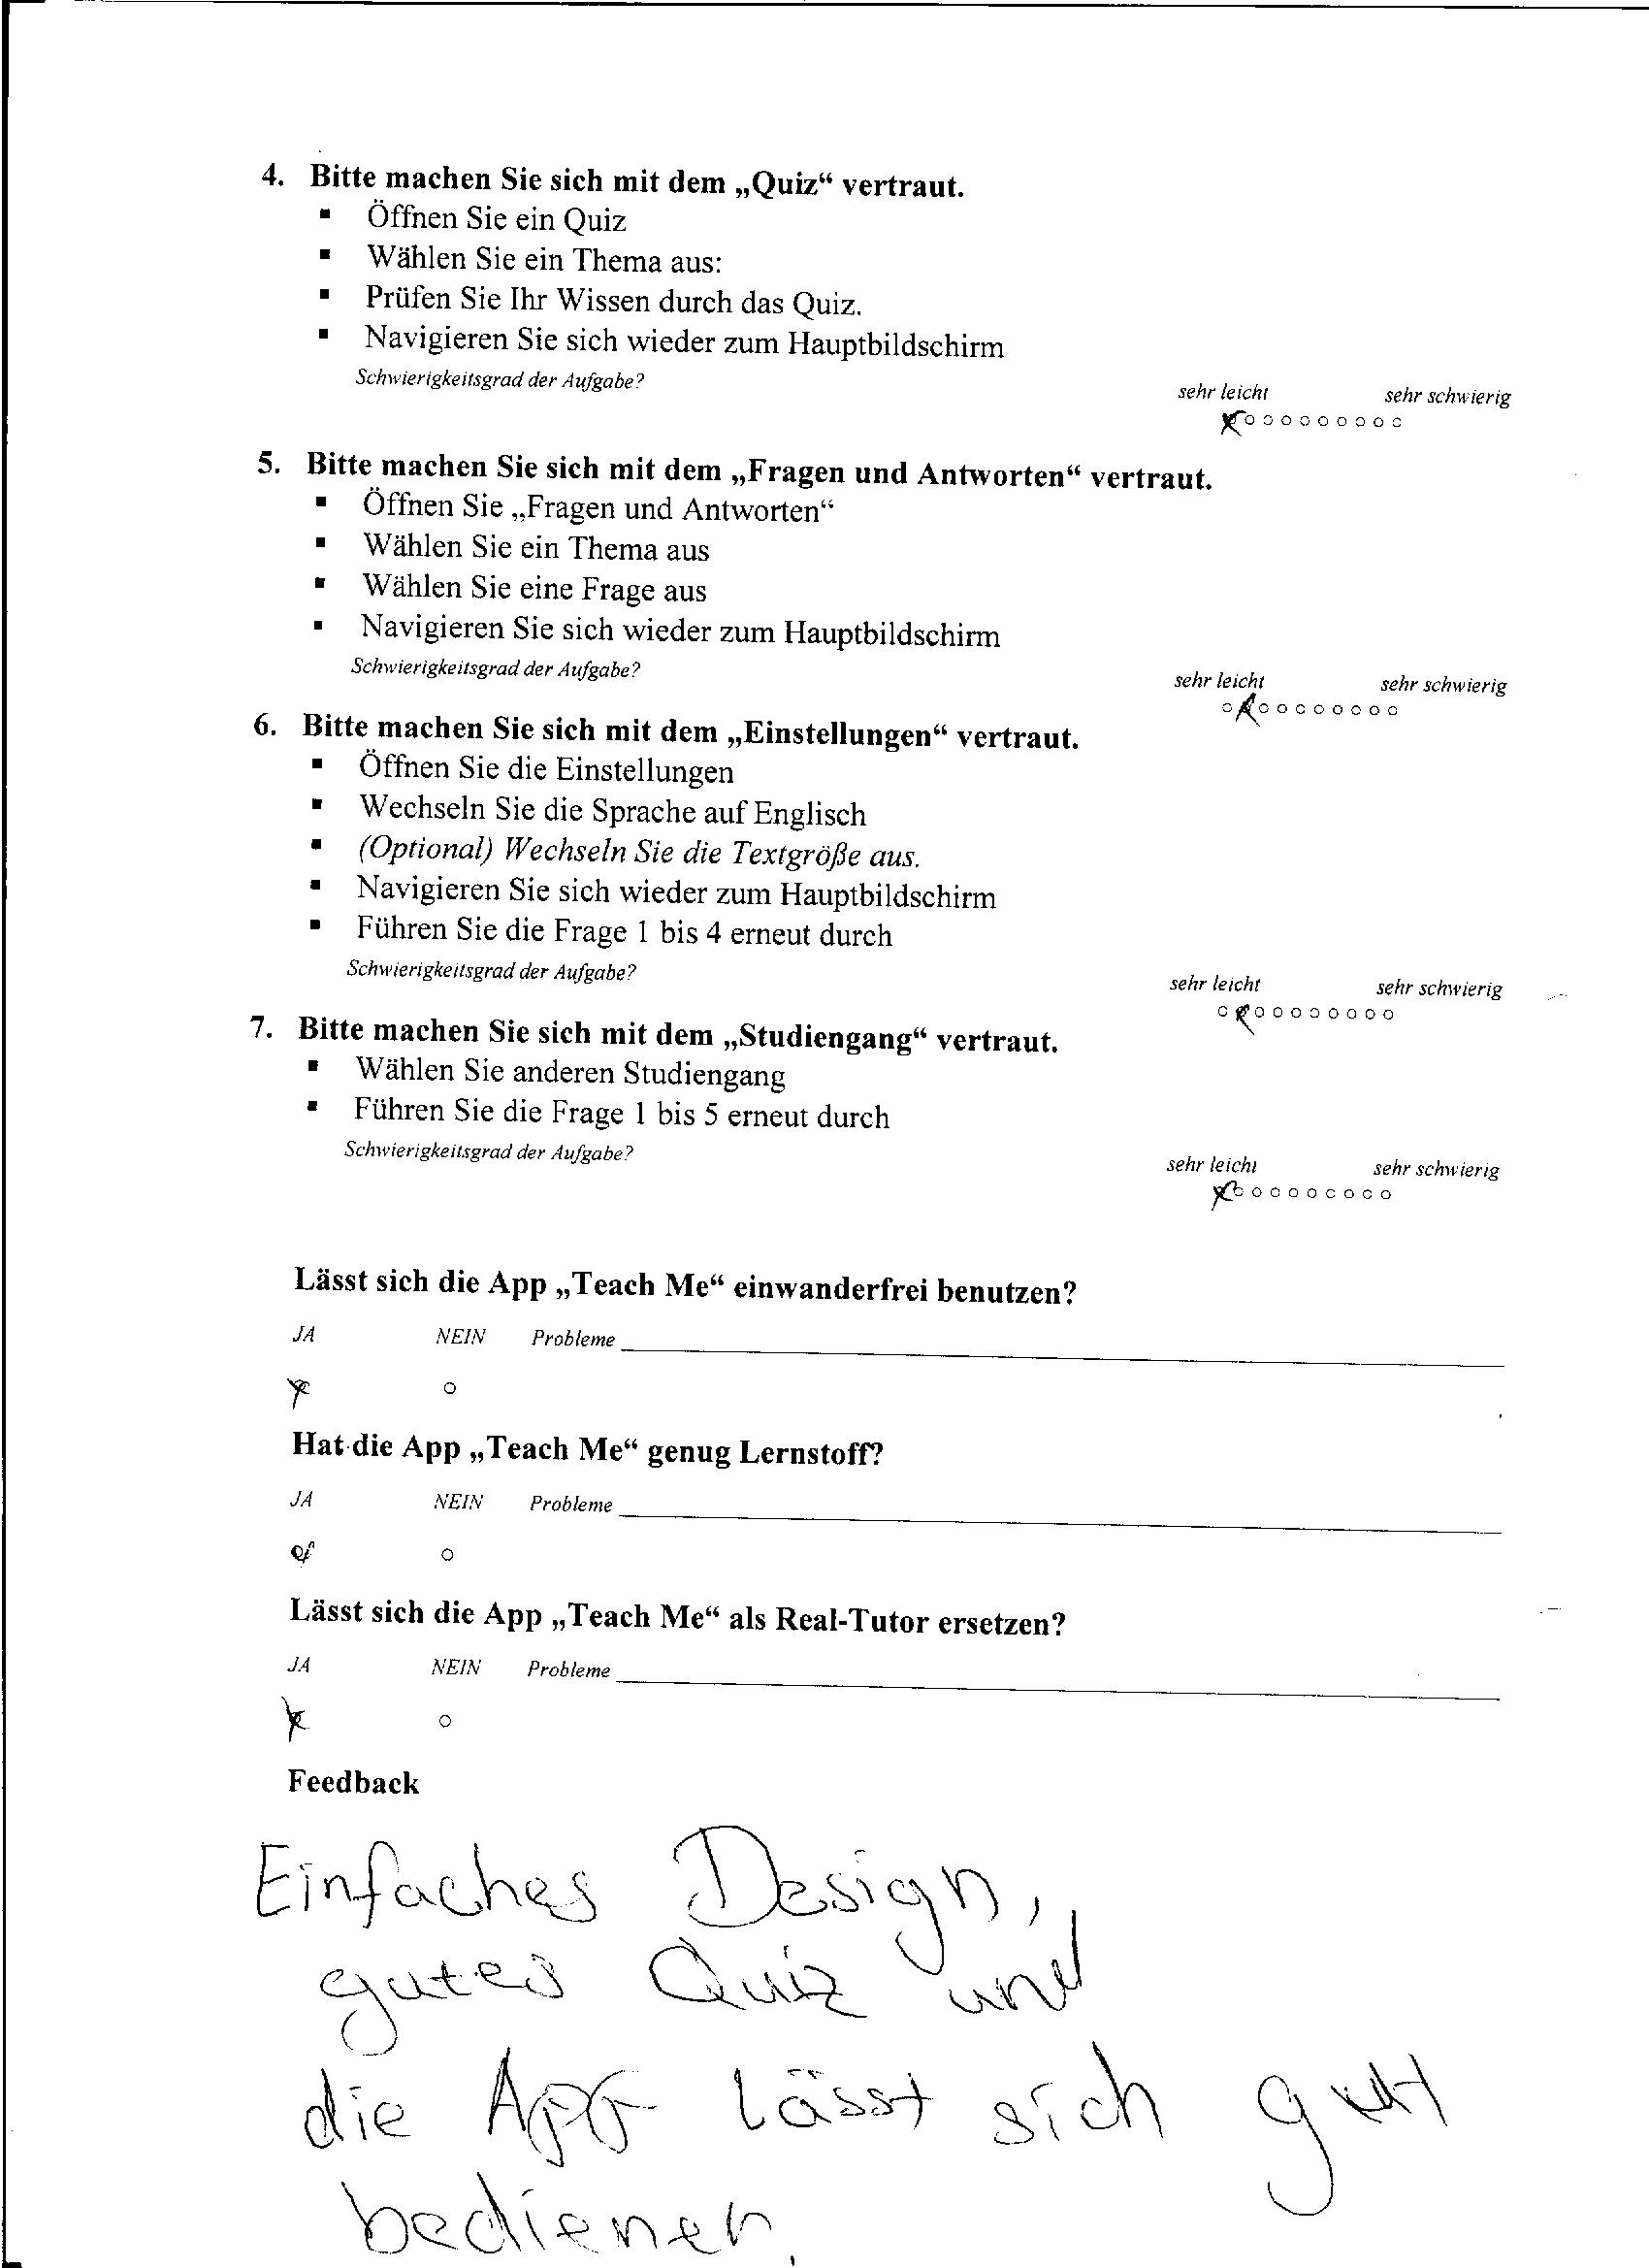 4. Bitte machen Sie sich mit dem „Quiz“ vertraut.
▪ Öffnen Sie ein Quiz
▪ Wählen Sie ein Thema aus:
▪ Prüfen Sie Ihr Wissen durch das Quiz.
▪ Navigieren Sie sich wieder zum Hauptbildschirm
Schwierigkeitsgrad der Aufgabe?
sehr leicht sehr schwierig
5. Bitte machen Sie sich mit dem „Fragen und Antworten“ vertraut.
▪ Öffnen Sie „Fragen und Antworten“
▪ Wählen Sie ein Thema aus
▪ Wählen Sie eine Frage aus
▪ Navigieren Sie sich wieder zum Hauptbildschirm
Schwierigkeitsgrad der Aufgabe?
sehr leicht sehr schwierig
6. Bitte machen Sie sich mit dem „Einstellungen“ vertraut.
▪ Öffnen Sie die Einstellungen
▪ Wechseln Sie die Sprache auf Englisch
▪ (Optional) Wechseln Sie die Textgröße aus.
▪ Navigieren Sie sich wieder zum Hauptbildschirm
▪ Führen Sie die Frage 1 bis 4 erneut durch
Schwierigkeitsgrad der Aufgabe?
sehr leicht sehr schwierig
7. Bitte machen Sie sich mit dem „Studiengang“ vertraut.
▪ Wählen Sie anderen Studiengang
▪ Führen Sie die Frage 1 bis 5 erneut durch
Schwierigkeitsgrad der Aufgabe?
sehr leicht sehr schwierig
Lässt sich die App „Teach Me“ einwanderfrei benutzen?
JA NEIN Probleme
Hat die App „Teach Me“ genug Lernstoff?
JA NEIN Probleme
Lässt sich die App „Teach Me“ als Real-Tutor ersetzen?
JA NEIN Probleme
Feedback
Einfaches Design,
gutes Quiz und
die App lässt sich gut
bedienen.